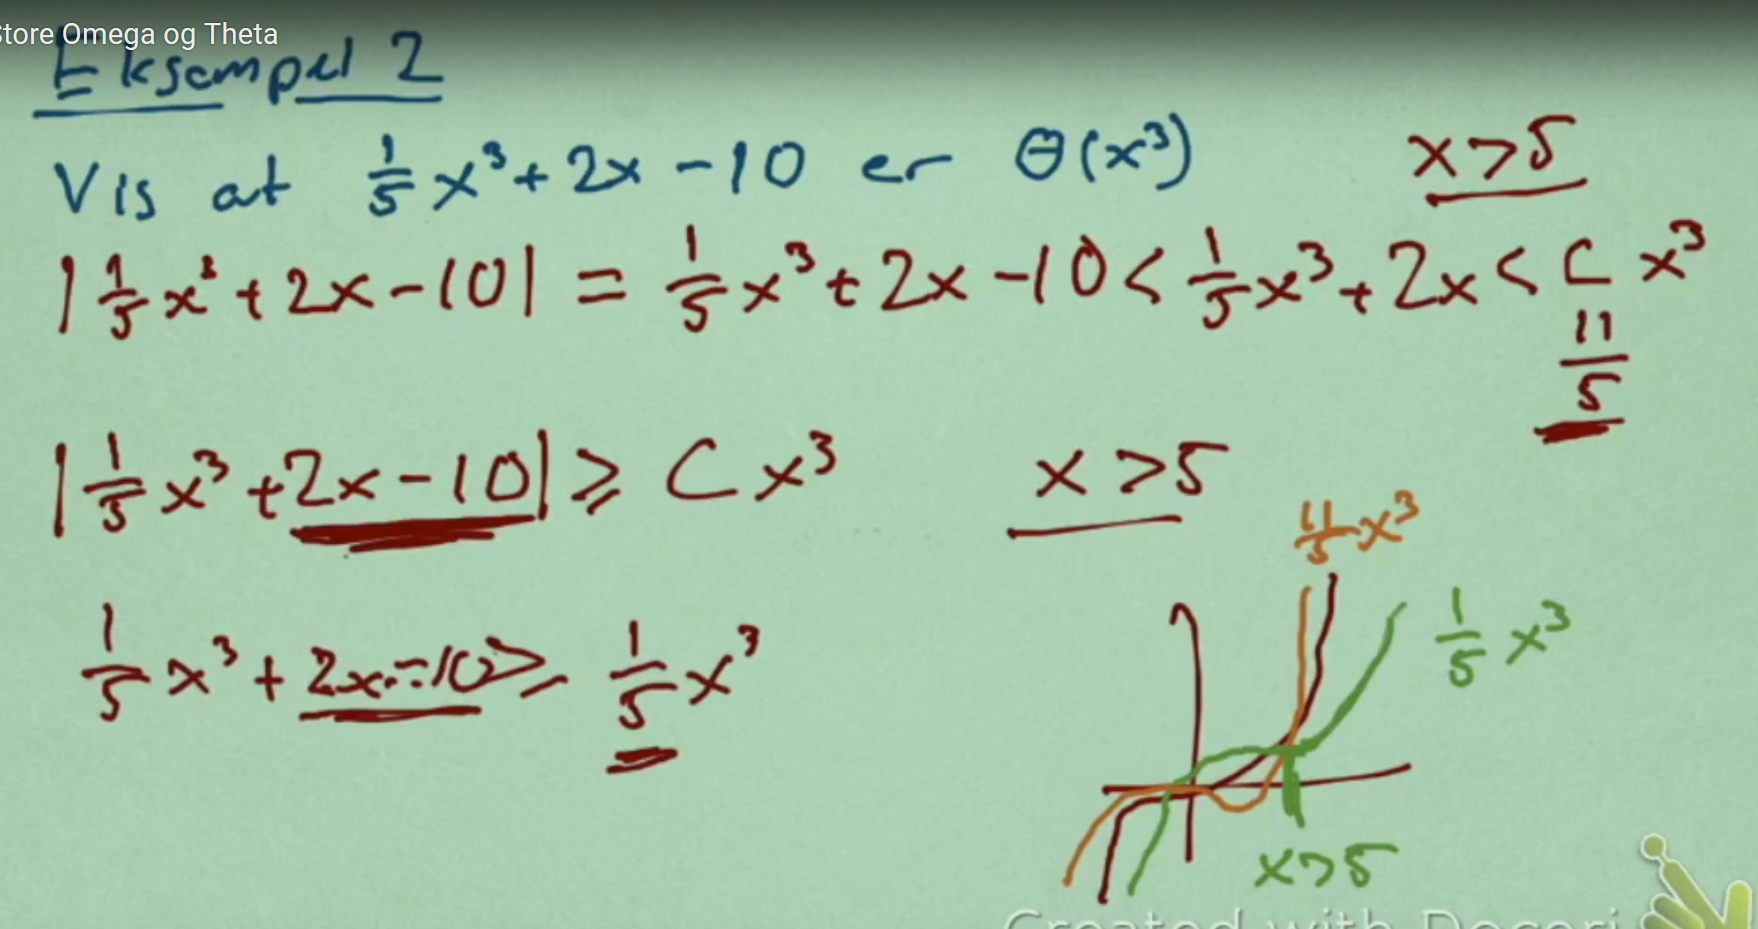 Store Omega og Theta
Eksempel 2
Vis at 1/5 x³ + 2x - 10 er Θ(x³)
x > 5
|1/5 x³ + 2x - 10| = 1/5 x³ + 2x - 10 < 1/5 x³ + 2x < C x³
11/5
|1/5 x³ + 2x - 10| ≥ C x³
x > 5
11/5 x³
1/5 x³ + 2x - 10 ≥ 1/5 x³
1/5 x³
x > 5
Created with Doceri